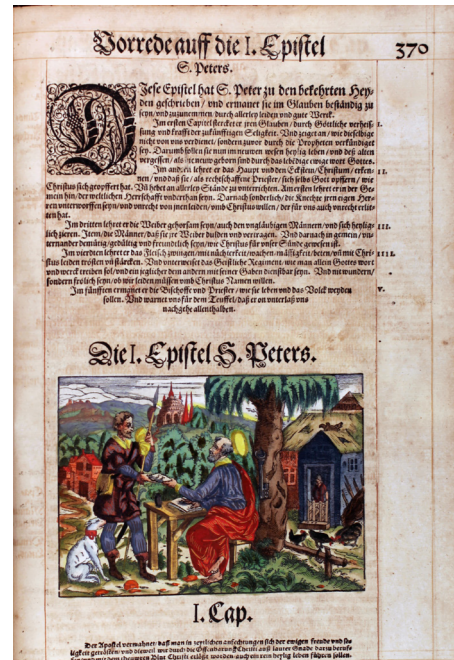 Vorrede auff die I. Epistel
370
S. Peters.
DIese Epistel hat S. Peter zu den bekehrten Hey-
den geschrieben / vnd ermanet sie im Glauben bestendig zu
seyn / vnd zuzunemmen durch allerley leiden vnd gute Werck.
I.
Im ersten Capitel stercket er jren Glauben / durch Göttliche verheis-
sung vnd krafft der zukünfftigen Seligkeit. Vnd zeiget an / wie dieselbige
nicht von vns verdienet / sondern zuvor durch die Propheten verkündiget
sey. Darumb sollen sie nun im neuwen wesen heylig leben / vnd deß alten
vergessen / als die neuw geborn sind durch das lebendige ewige wort Gottes.
II.
Im andern lehret er das Haupt vnd den Eckstein / Christum / erken-
nen / vnd daß sie / als rechtschaffene Priester / sich selbs Gott opffern / wie
Christus sich geopffert hat. Vñ hebet an allerley Stände zu vnterrichten. Am ersten lehret er in der Ge-
mein hin / der weltlichen Herrschafft vnderthan seyn. Darnach sonderlich / die Knechte jren eigen Her-
ren vnterworffen seyn / vnd vnrecht von jnen leiden / vmb Christus willen / der für vns auch vnrecht erlit-
ten hat.
III.
Im dritten lehret er die Weiber gehorsam seyn / auch den vngläubigen Männern / vnd sich heylig-
lich zieren. Item / die Männer / daß sie jre Weiber dulden vnd vertragen. Vnd darnach in gemein / vn-
ternander demütig / gedültig vnd freundtlich seyn / wie Christus für vnser Sünde gewesen ist.
IIII.
Im vierdten lehret er das Fleisch zwingen / mit nüchterkeit / wachen / mässigkeit / beten / vñ mit Chri-
stus leiden trösten vñ stärcken. Vnd vnterweiset das Geistliche Regiment / wie man allein Gottes wort
vnd werck treiben sol / vnd ein jeglicher dem andern mit seiner Gaben dienstbar seyn. Vnd nit wundern /
sondern frölich seyn / ob wir leiden müssen vmb Christus Namen willen.
V.
Im fünfften ermanet er die Bischoffe vnd Priester / wie sie leben vnd das Volck weyden
sollen. Vnd warnet vns für dem Teuffel / daß er on vnterlaß vns
nachgehe allenthalben.
Die I. Epistel S. Peters.
I. Cap.
Der Apostel vermahnet / daß man in zeytlichen anfechtungen sich der ewigen freude vnd se-
ligkeit getrösten / vnd dieweil wir durch die Offenbarung Christi auß lauter Gnade darzu beruf-